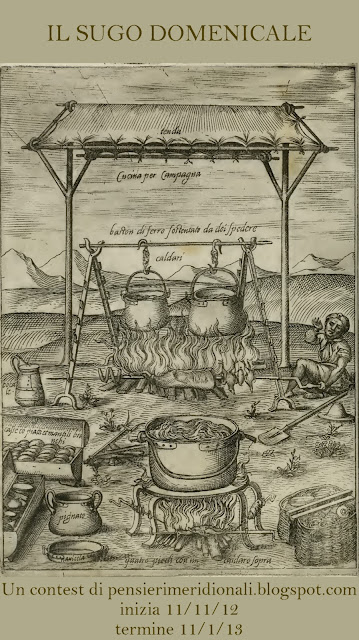 IL SUGO DOMENICALE
tenda
Cucina per Campagna
baston di ferro sostentato da doi spedere
caldari
pignate
quatro piedi con un caldaro sopra
Un contest di pensierimeridionali.blogspot.com
inizia 11/11/12
termine 11/1/13